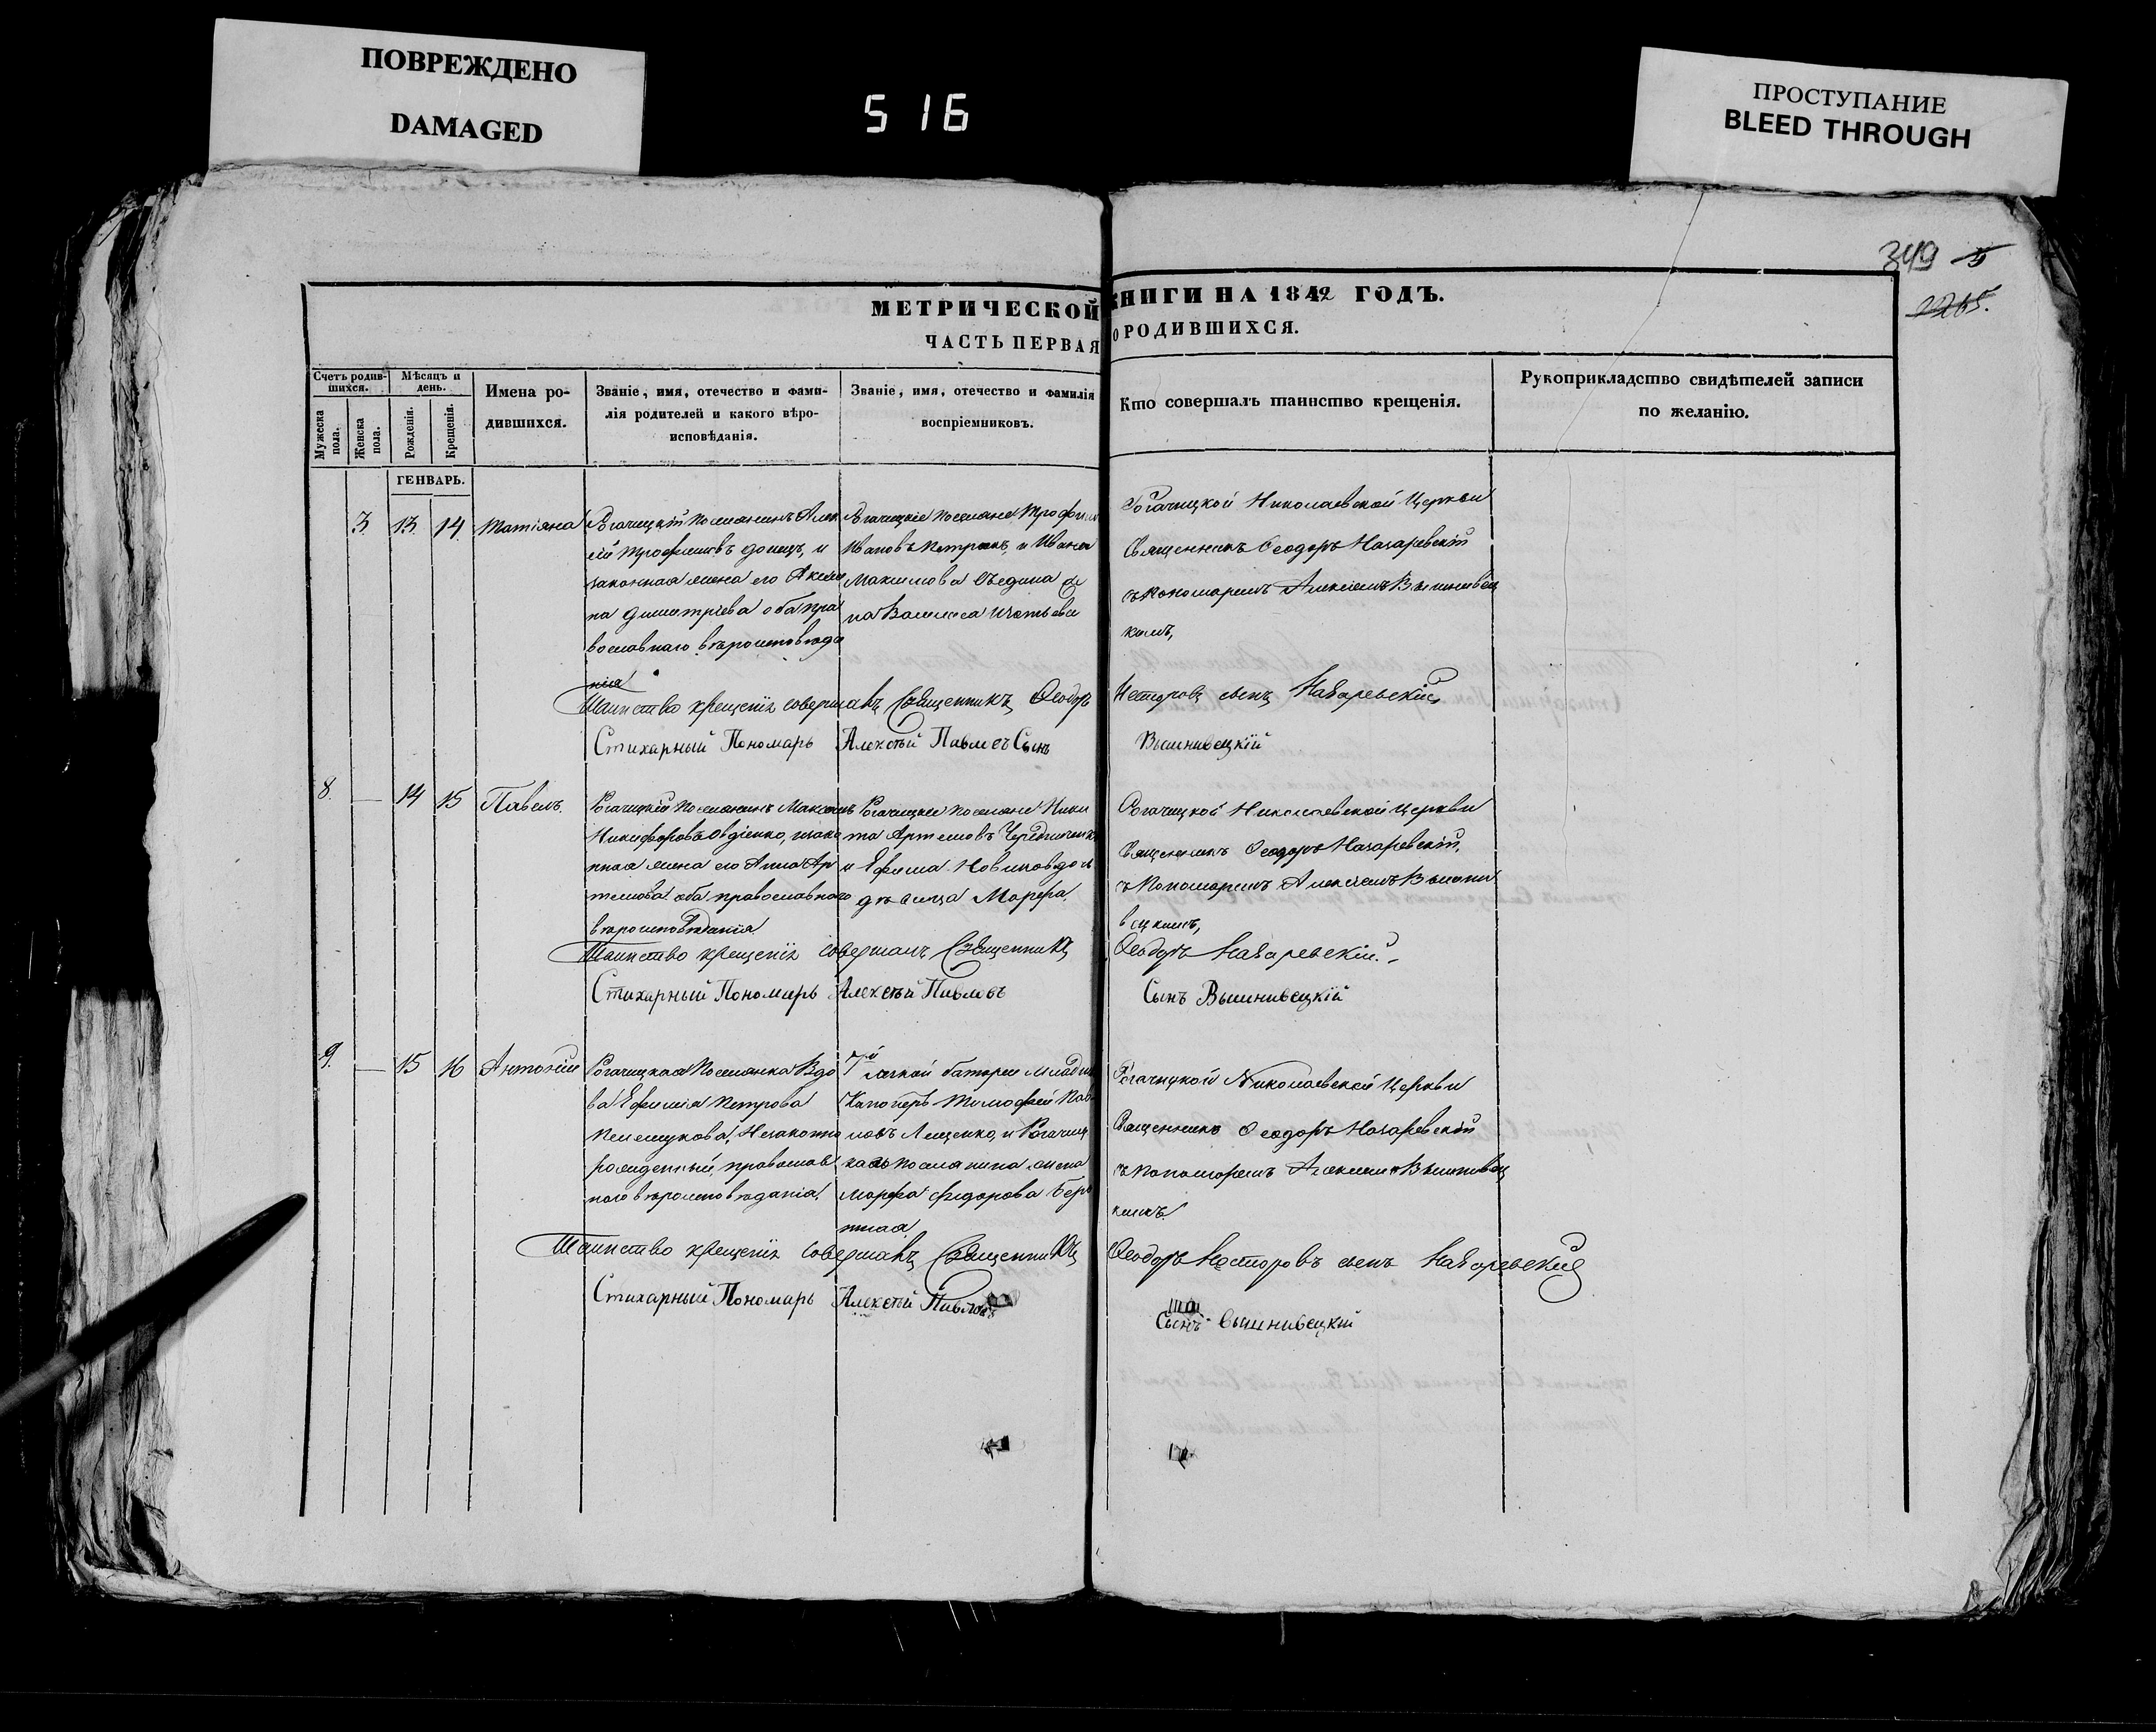 ПОВРЕЖДЕНО
DAMAGED
516
ПРОСТУПАНИЕ
BLEED THROUGH
349 5
2265.
МЕТРИЧЕСКОЙ КНИГИ НА 1842 ГОДЪ.
ЧАСТЬ ПЕРВАЯ О РОДИВШИХСЯ.
Счетъ родив-
шихся.
Мужеска пола.
Женска пола.
Мѣсяцъ и
день.
Рожденія.
Крещенія.
Имена ро-
дившихся.
Званіе, имя, отечество и фами-
лія родителей и какого вѣро-
исповѣданія.
Званіе, имя, отечество и фамилія
воспріемниковъ.
Кто совершалъ таинство крещенія.
Рукоприкладство свидѣтелей записи
по желанію.
ГЕНВАРЬ.
3. 13. 14. Татіяна
Рогачицкій Поселянинъ Алек
ѣй Трофимовъ донецъ, и
законная жена его Акили
на Димитріева оба пра
вославнаго вѣроисповѣда
нія
Рогачицкіе Поселяне Трофим
Ивановъ и Ивана
Максимова
Рогачицкой Николаевской Церкви
Священникъ Ѳеодоръ Назаревскій
съ Пономаремъ Алексіемъ Вышнивец
кимъ,
Таинство крещенія совершалъ Священникъ Ѳеодоръ Несторовъ сынъ Назаревскій
Стихарный Пономарь Алексѣй Павловъ Сынъ Вышнивецкій
8. — 14 15 Павелъ.
Рогачицкій Поселянинъ Максимъ
Никифоровъ Овдіенко, изако
нная жена его Анна Ар
темова оба православнаго
вѣроисповѣданія
Рогачицкіе Поселяне Ники
та Артемовъ Чередниченко
и Ефима Новикова дочь
дѣвица Марфа.
Рогачицкой Николаевской Церкви
Священникъ Ѳеодоръ Назаревскій,
съ Пономаремъ Алексіемъ Вышни
вецкимъ,
Таинство крещенія совершалъ Священникъ Ѳеодоръ Назаревскій.
Стихарный Пономарь Алексѣй Павловъ Сынъ Вышнивецкій
9. — 15 16 Антоній
Рогачицкая Поселянка Вдо
ва Ефимія Петрова
Незаконно
рожденный, православ
наго вѣроисповѣданія.
7й легкой батареи младшій
Канонеръ Тимофей Пав
ловъ Лещенко, и Рогачиц
каго поселянина жена
Марфа Федорова
Рогачицкой Николаевской Церкви
Священникъ Ѳеодоръ Назаревскій
съ Пономаремъ Алексіемъ Вышнивец
кимъ.
Таинство крещенія совершалъ Священникъ Ѳеодоръ Несторовъ сынъ Назаревскій
Стихарный Пономарь Алексѣй Павловъ
Сынъ Вышнивецкій